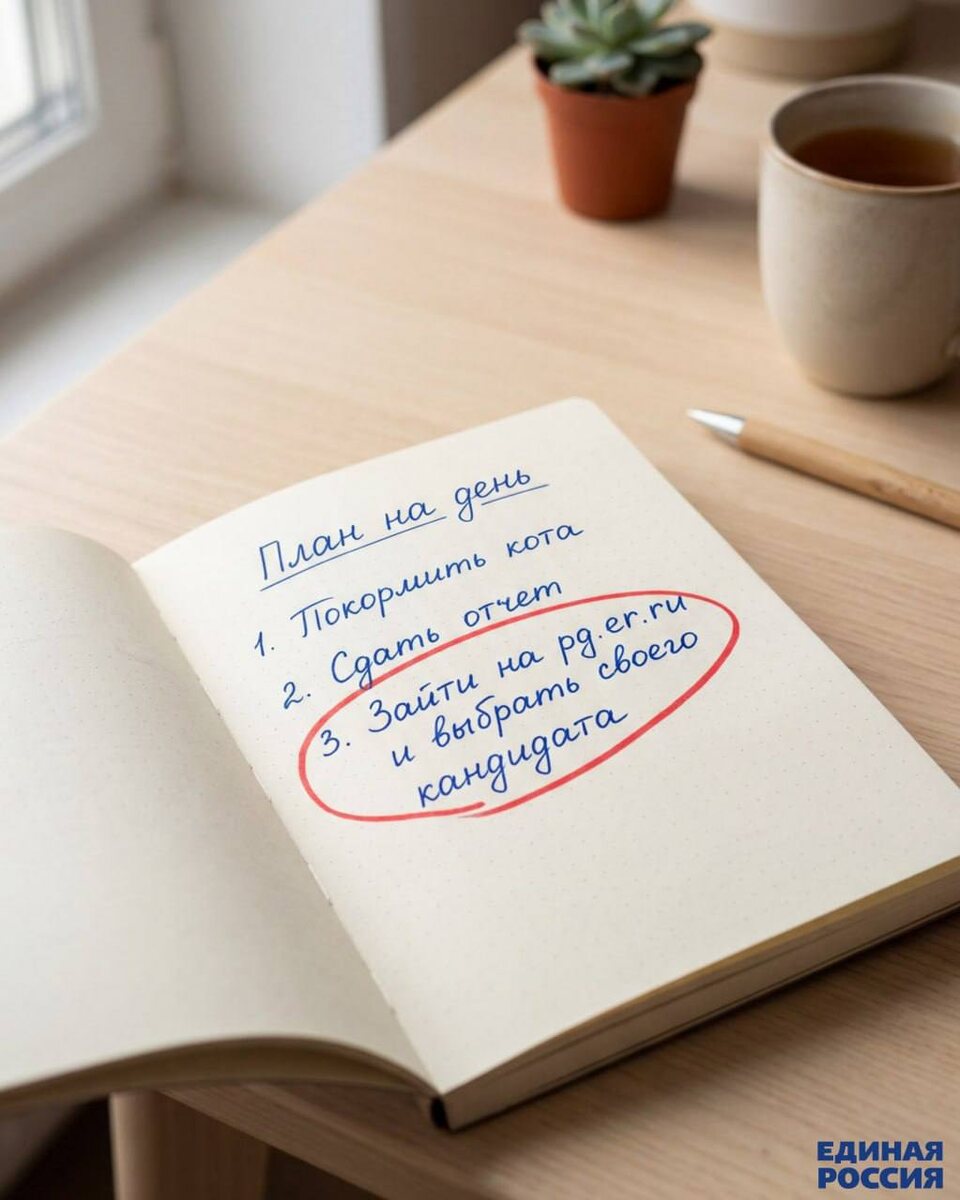 План на день
1. Покормить кота
2. Сдать отчет
3. Зайти на pg.er.ru
и выбрать своего
кандидата
ЕДИНАЯ
РОССИЯ